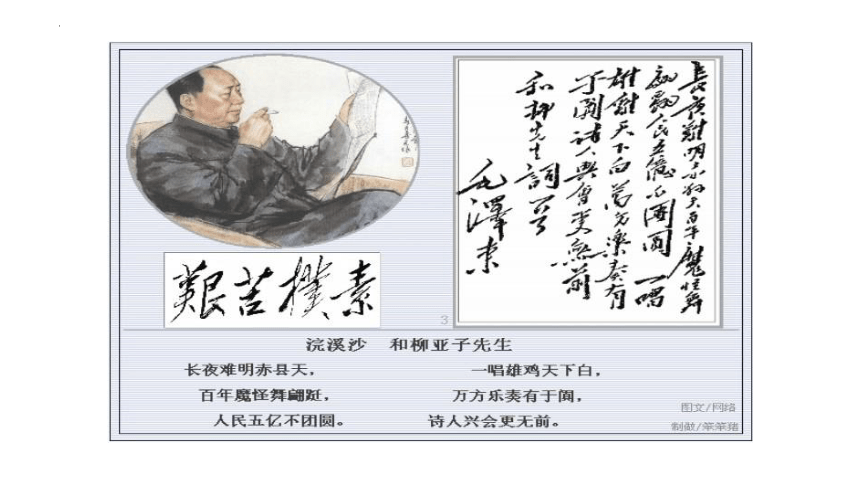 長夜難明赤縣天百年魔怪舞
翩躚人民五億不團圓一唱
雄雞天下白萬方樂奏有
于闐詩人興會更無前
和柳先生詞
毛澤東
艱苦樸素
3
浣溪沙 和柳亚子先生
长夜难明赤县天，
百年魔怪舞翩跹，
人民五亿不团圆。
一唱雄鸡天下白，
万方乐奏有于阗，
诗人兴会更无前。
图文/网络
制做/笨笨猪